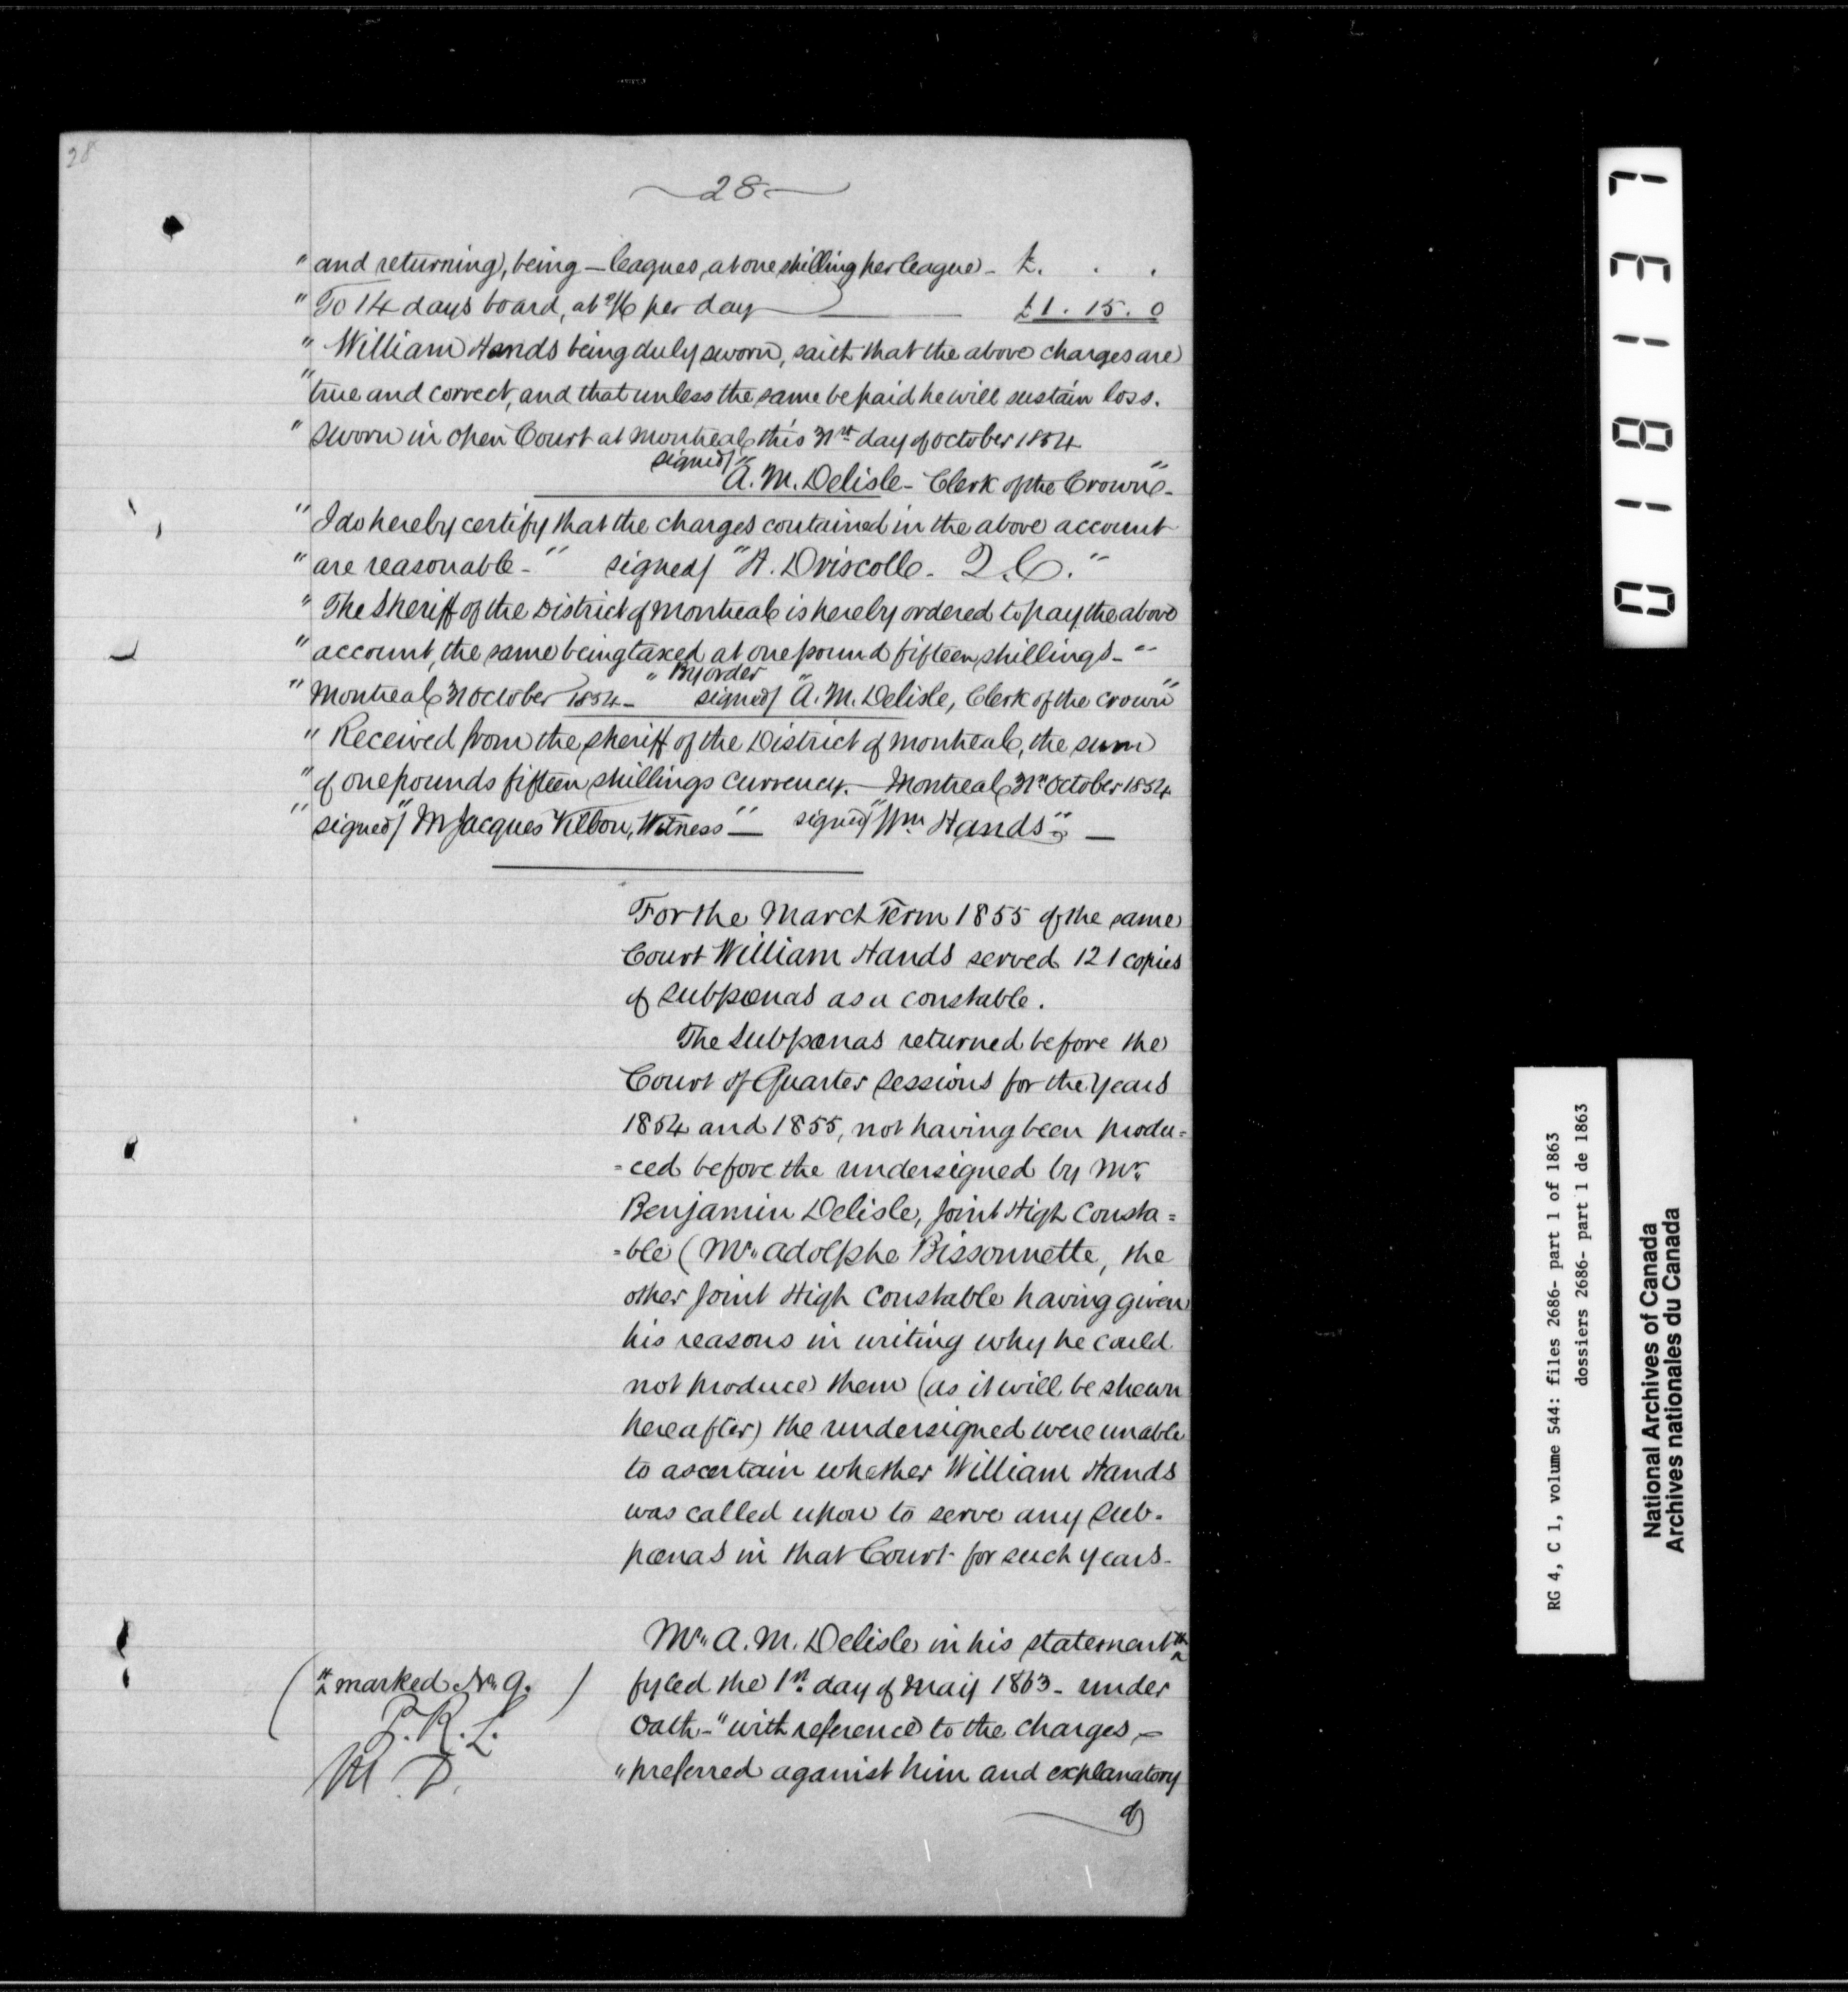 28
28
" and returning), being — leagues, at one shilling per league) - £. . .
" To 14 days board, at 2/6 per day £1. 15. 0
" William Hands being duly sworn, saith that the above charges are
" true and correct, and that unless the same be paid he will sustain loss.
" sworn in open Court at Montreal this 31st day of October 1854
signed/ "A. M. Delisle - Clerk of the Crown" -
" I do hereby certify that the charges contained in the above account
" are reasonable - " signed/ "H. Driscoll - Q.C."
" The Sheriff of the District of Montreal is hereby ordered to pay the above
" account, the same being taxed at one pound fifteen shillings - "
" By order
" Montreal 31 October 1854 - signed/ "A. M. Delisle, Clerk of the crown"
" Received from the sheriff of the District of Montreal, the sum
" of one pounds fifteen shillings currency. — Montreal 31st October 1854
" signed/ " Jacques Witness" — signed/ "Wm Hands" —
For the March Term 1855 of the same
Court William Hands served 121 copies
of subpœnas as a constable.
The Subpœnas returned before the
Court of Quarter Sessions for the years
1854 and 1855, not having been produ=
=ced before the undersigned by Mr.
Benjamin Delisle, Joint High Consta=
=ble (Mr. Adolphe Bissonnette, the
other Joint High Constable having given
his reasons in writing why he could
not produce them (as it will be shewn
hereafter) the undersigned were unable
to ascertain whether William Hands
was called upon to serve any sub-
pœnas in that Court for such years -
Mr. A. M. Delisle in his statement #
(# marked No. 9.)
P. R. L.
M. D.
fyled the 1st day of May 1863 - under
Oath - "with reference to the charges -
"preferred against him and explanatory
of
0 1 8 1 3 7
RG 4, C 1, volume 544: files 2686- part 1 of 1863
dossiers 2686- part 1 de 1863
National Archives of Canada
Archives nationales du Canada